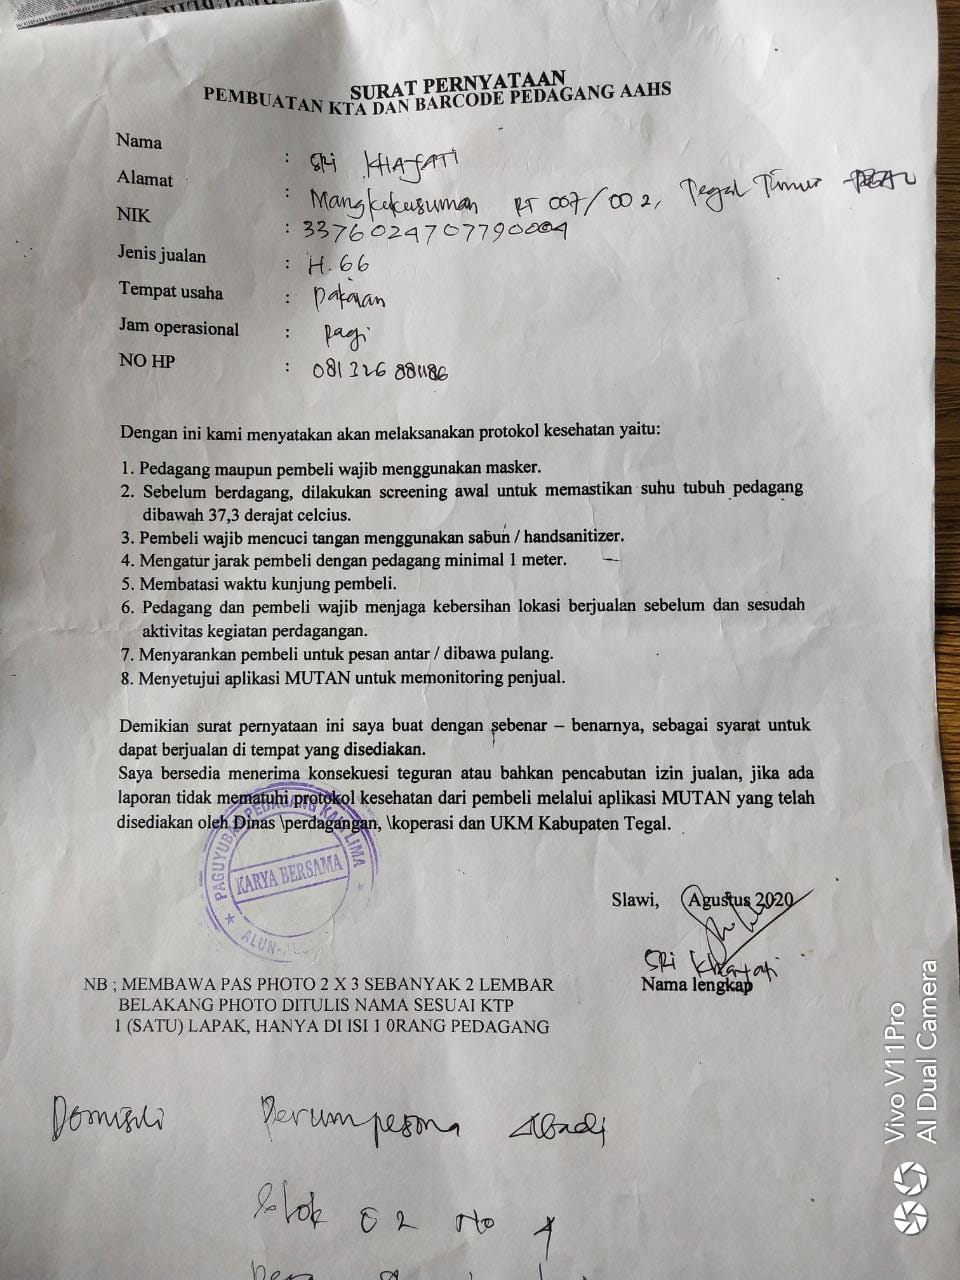 SURAT PERNYATAAN
PEMBUATAN KTA DAN BARCODE PEDAGANG AAHS
Nama : SRI KHAJATI
Alamat : Mangkukusuman RT 007/002, Tegal Timur
NIK : 3376024707790004
Jenis jualan : H.66
Tempat usaha : Pakaian
Jam operasional : Pagi
NO HP : 081 326 881186
Dengan ini kami menyatakan akan melaksanakan protokol kesehatan yaitu:
1. Pedagang maupun pembeli wajib menggunakan masker.
2. Sebelum berdagang, dilakukan screening awal untuk memastikan suhu tubuh pedagang
dibawah 37,3 derajat celcius.
3. Pembeli wajib mencuci tangan menggunakan sabun / handsanitizer.
4. Mengatur jarak pembeli dengan pedagang minimal 1 meter.
5. Membatasi waktu kunjung pembeli.
6. Pedagang dan pembeli wajib menjaga kebersihan lokasi berjualan sebelum dan sesudah
aktivitas kegiatan perdagangan.
7. Menyarankan pembeli untuk pesan antar / dibawa pulang.
8. Menyetujui aplikasi MUTAN untuk memonitoring penjual.
Demikian surat pernyataan ini saya buat dengan sebenar – benarnya, sebagai syarat untuk
dapat berjualan di tempat yang disediakan.
Saya bersedia menerima konsekuesi teguran atau bahkan pencabutan izin jualan, jika ada
laporan tidak mematuhi protokol kesehatan dari pembeli melalui aplikasi MUTAN yang telah
disediakan oleh Dinas \perdagangan, \koperasi dan UKM Kabupaten Tegal.
PAGUYUBAN PEDAGANG KAKI LIMA
KARYA BERSAMA
Slawi, Agustus 2020
SRI Khajati
Nama lengkap
NB ; MEMBAWA PAS PHOTO 2 X 3 SEBANYAK 2 LEMBAR
BELAKANG PHOTO DITULIS NAMA SESUAI KTP
1 (SATU) LAPAK, HANYA DI ISI 1 0RANG PEDAGANG
Domisili Perum pesona Abadi
Blok 02 No 4
Vivo V11Pro
AI Dual Camera